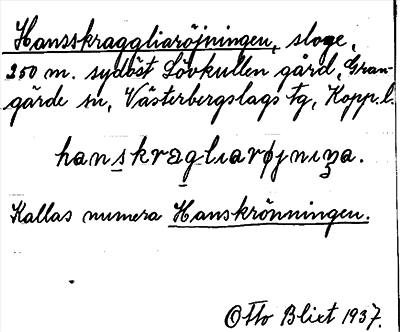 Hansskraggliaröjningen, sloge,
250 m. sydöst Lövkullen gård, Gran-
gärde sn, Västerbergslags tg, Kopp. l.
hanskragliarøjniŋa.
Kallas numera Hanskrönningen.
Otto Blixt 1937.